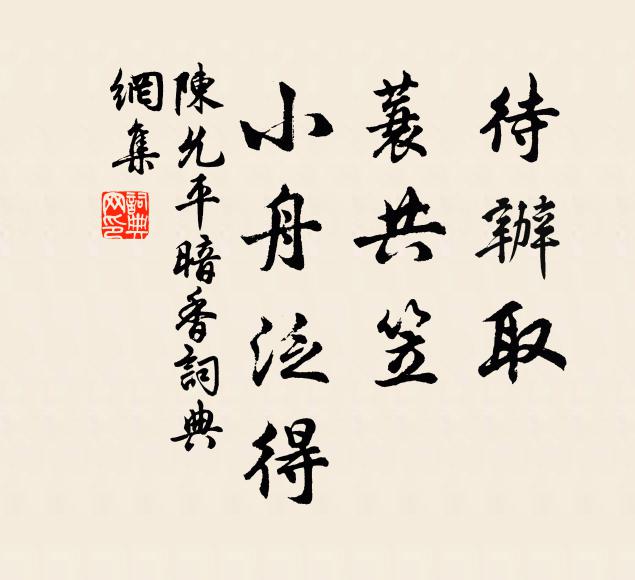 待辦取
蓑共笠
小舟泛得
陳允平暗香詞典
網集
詞典
网印